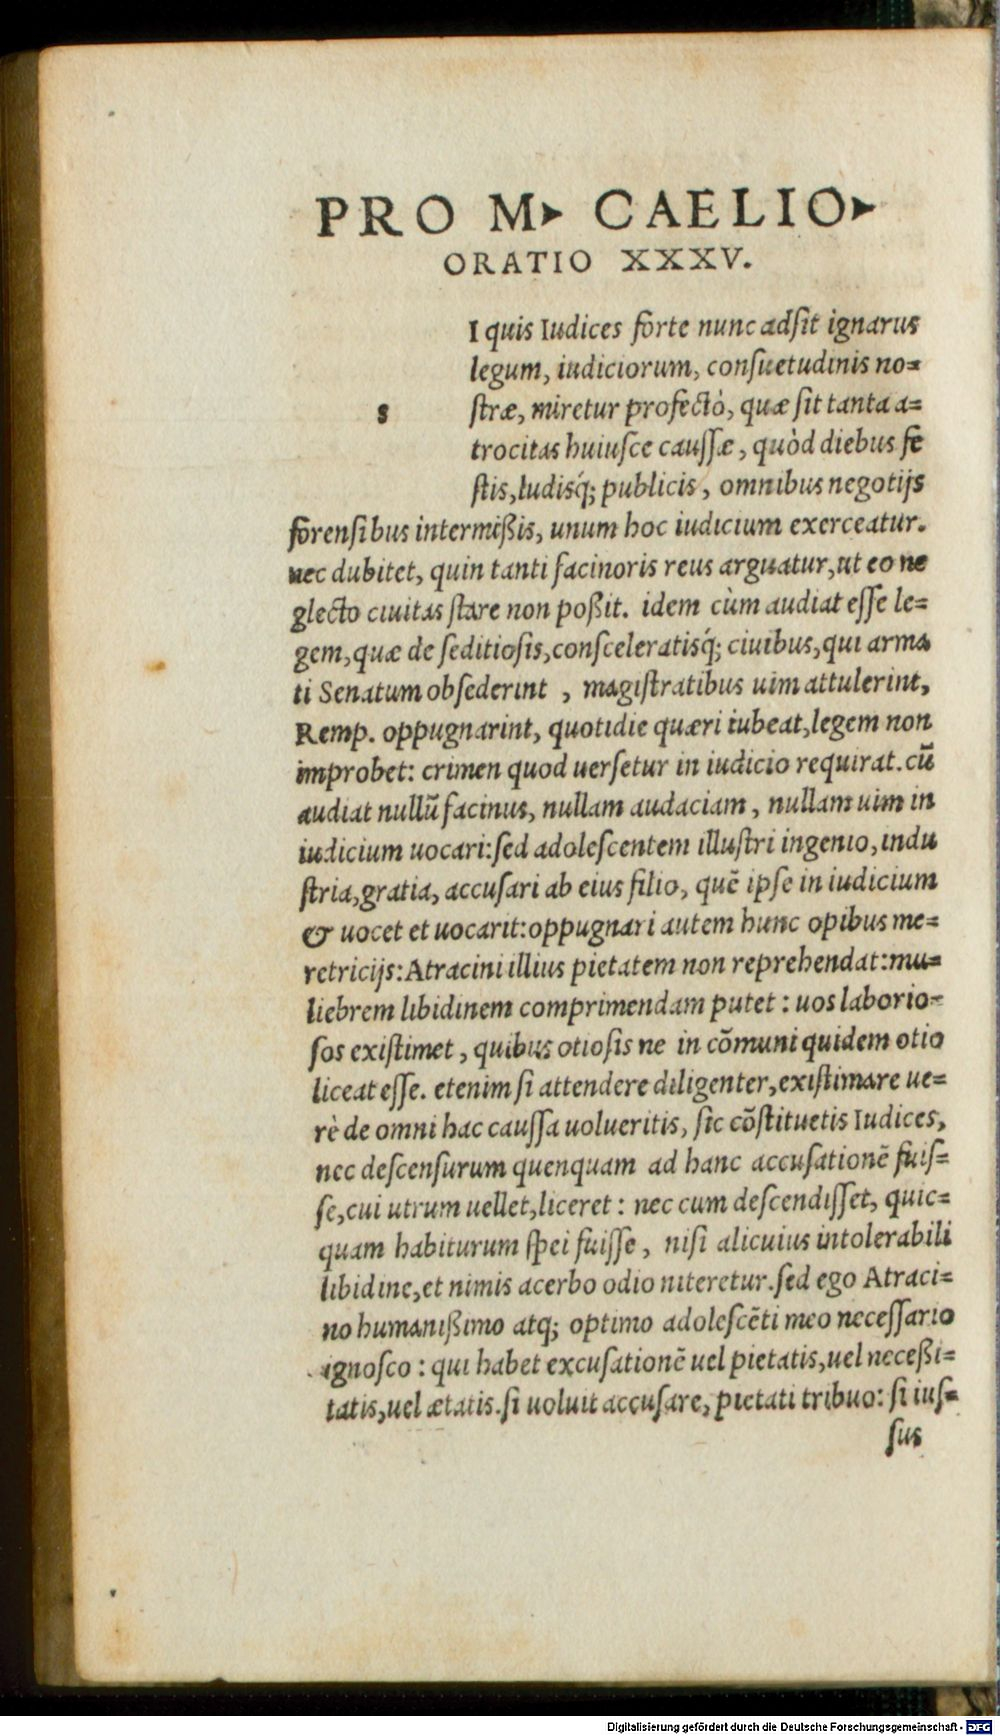 PRO M▸ CAELIO▸
ORATIO XXXV.
I quis Iudices forte nunc adſit ignarus
legum, iudiciorum, conſuetudinis no=
s ſtræ, miretur profectò, quæ ſit tanta a=
trocitas huiuſce cauſſæ, quòd diebus fe
ſtis, ludisq́; publicis, omnibus negotijs
forenſibus intermißis, unum hoc iudicium exerceatur.
nec dubitet, quin tanti facinoris reus arguatur, ut eo ne
glecto ciuitas ſtare non poßit. idem cùm audiat eſſe le=
gem, quæ de ſeditioſis, conſceleratisq́; ciuibus, qui arma
ti Senatum obſederint , magiſtratibus uim attulerint,
Remp. oppugnarint, quotidie quæri iubeat, legem non
improbet: crimen quod uerſetur in iudicio requirat. cū
audiat nullū facinus, nullam audaciam, nullam uim in
iudicium uocari: ſed adoleſcentem illuſtri ingenio, indu
ſtria, gratia, accuſari ab eius filio, quē ipſe in iudicium
& uocet et uocarit: oppugnari autem hunc opibus me=
retricijs: Atracini illius pietatem non reprehendat: mu=
liebrem libidinem comprimendam putet : uos laborio=
ſos exiſtimet, quibus otioſis ne in cōmuni quidem otio
liceat eſſe. etenim ſi attendere diligenter, exiſtimare ue=
rè de omni hac cauſſa uolueritis, ſic cōſtituetis Iudices,
nec deſcenſurum quenquam ad hanc accuſationē fuiſ=
ſe, cui utrum uellet, liceret : nec cum deſcendiſſet, quic=
quam habiturum ſpei fuiſſe, niſi alicuius intolerabili
libidine, et nimis acerbo odio niteretur. ſed ego Atraci=
no humanißimo atq; optimo adoleſcēti meo neceſſario
ignoſco : qui habet excuſationē uel pietatis, uel neceßi=
tatis, uel ætatis. ſi uoluit accuſare, pietati tribuo: ſi iuſ=
ſus
Digitalisierung gefördert durch die Deutsche Forschungsgemeinschaft - DFG